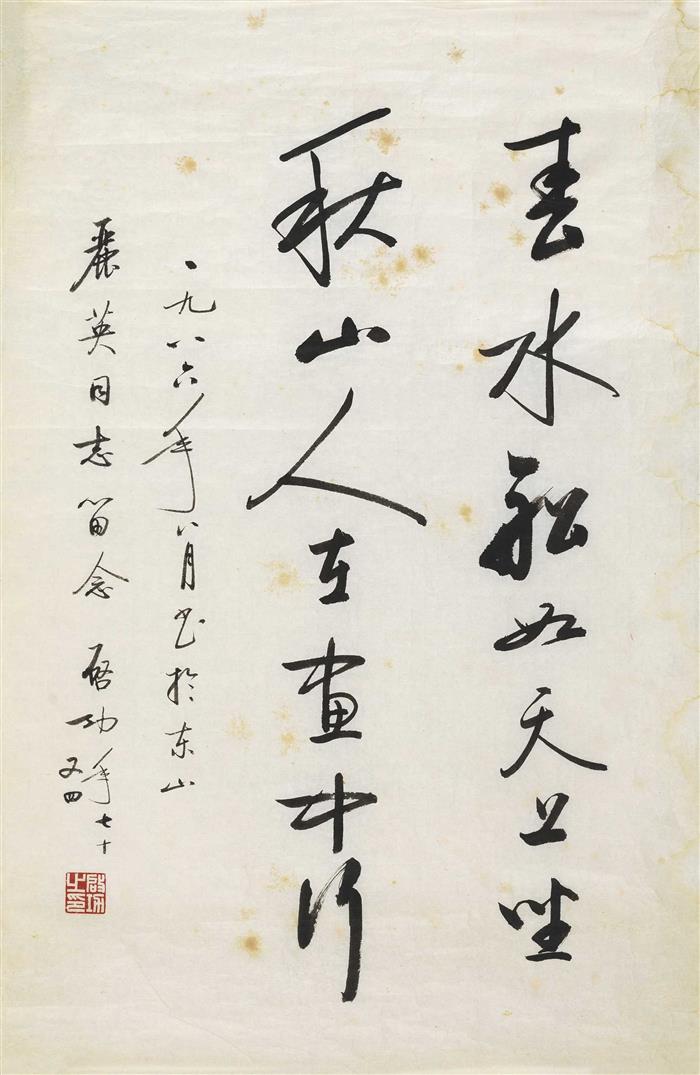 春水船如天上坐
秋山人在畫中行
一九八六年八月书於东山
麗英同志留念 啓功年七十又四
啟功之印